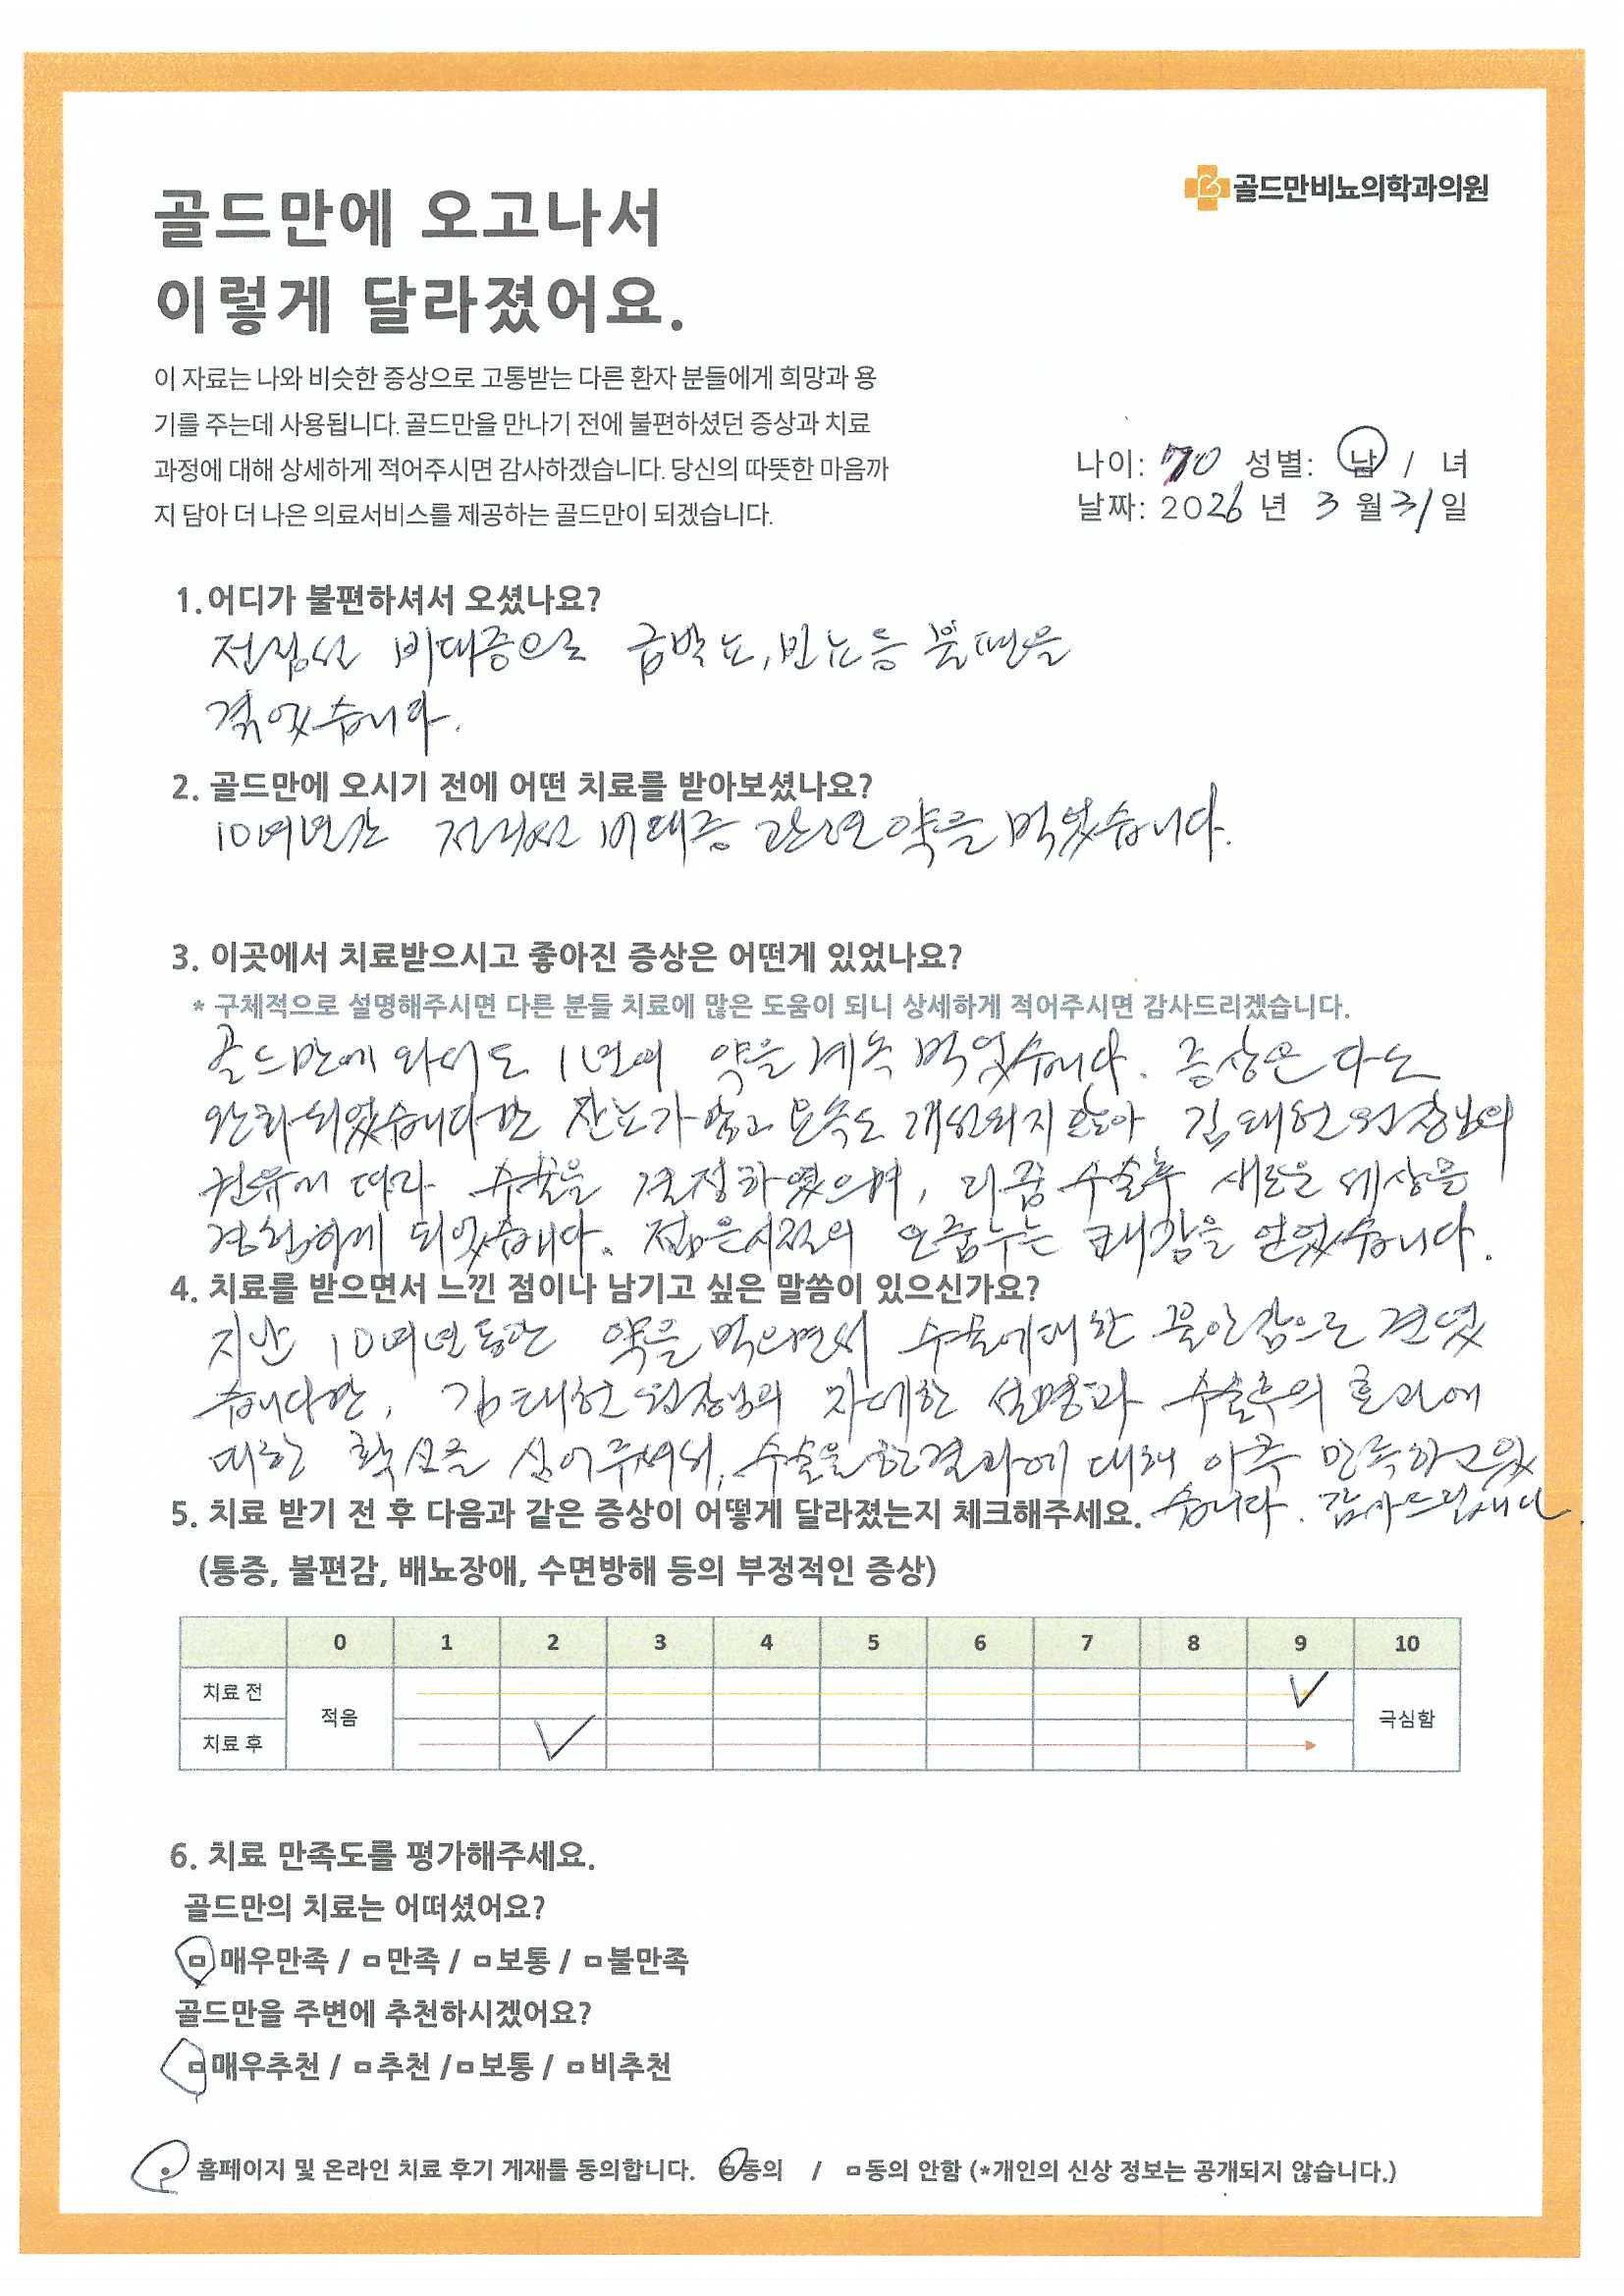 골드만비뇨의학과의원
골드만에 오고나서
이렇게 달라졌어요.
이 자료는 나와 비슷한 증상으로 고통받는 다른 환자 분들에게 희망과 용
기를 주는데 사용됩니다. 골드만을 만나기 전에 불편하셨던 증상과 치료
과정에 대해 상세하게 적어주시면 감사하겠습니다. 당신의 따뜻한 마음까
지 담아 더 나은 의료서비스를 제공하는 골드만이 되겠습니다.
나이: 70 성별: 남 / 녀
날짜: 2026 년 3 월 31 일
1.어디가 불편하셔서 오셨나요?
전립선 비대증으로 급박뇨, 빈뇨등 불편을
겪었습니다.
2. 골드만에 오시기 전에 어떤 치료를 받아보셨나요?
10여년간 전립선 비대증 관련 약을 먹었습니다.
3. 이곳에서 치료받으시고 좋아진 증상은 어떤게 있었나요?
* 구체적으로 설명해주시면 다른 분들 치료에 많은 도움이 되니 상세하게 적어주시면 감사드리겠습니다.
골드만에 와서도 1년여 약을 계속 먹었습니다. 증상은 다소
완화되었습니다만 잔뇨가 많고 요속도 개선되지 않아, 김태헌 원장님의
권유에 따라 수술을 결정하였으며, 리줌 수술후 새로운 세상을
경험하게 되었습니다. 젊은시절의 오줌누는 쾌감을 얻었습니다.
4. 치료를 받으면서 느낀 점이나 남기고 싶은 말씀이 있으신가요?
지난 10여년동안 약을 먹으면서 수술에대한 불안감으로 견뎠
습니다만, 김태헌 원장님의 자세한 설명과 수술후의 효과에
대한 확신을 심어주셔서, 수술을 한결과에 대해 아주 만족하고있
습니다. 감사드립니다.
5. 치료 받기 전 후 다음과 같은 증상이 어떻게 달라졌는지 체크해주세요.
(통증, 불편감, 배뇨장애, 수면방해 등의 부정적인 증상)
0 1 2 3 4 5 6 7 8 9 10
치료 전
적음
극심함
치료 후
6. 치료 만족도를 평가해주세요.
골드만의 치료는 어떠셨어요?
매우만족 / 만족 / 보통 / 불만족
골드만을 주변에 추천하시겠어요?
매우추천 / 추천 / 보통 / 비추천
홈페이지 및 온라인 치료 후기 게재를 동의합니다. 동의 / 동의 안함 (*개인의 신상 정보는 공개되지 않습니다.)